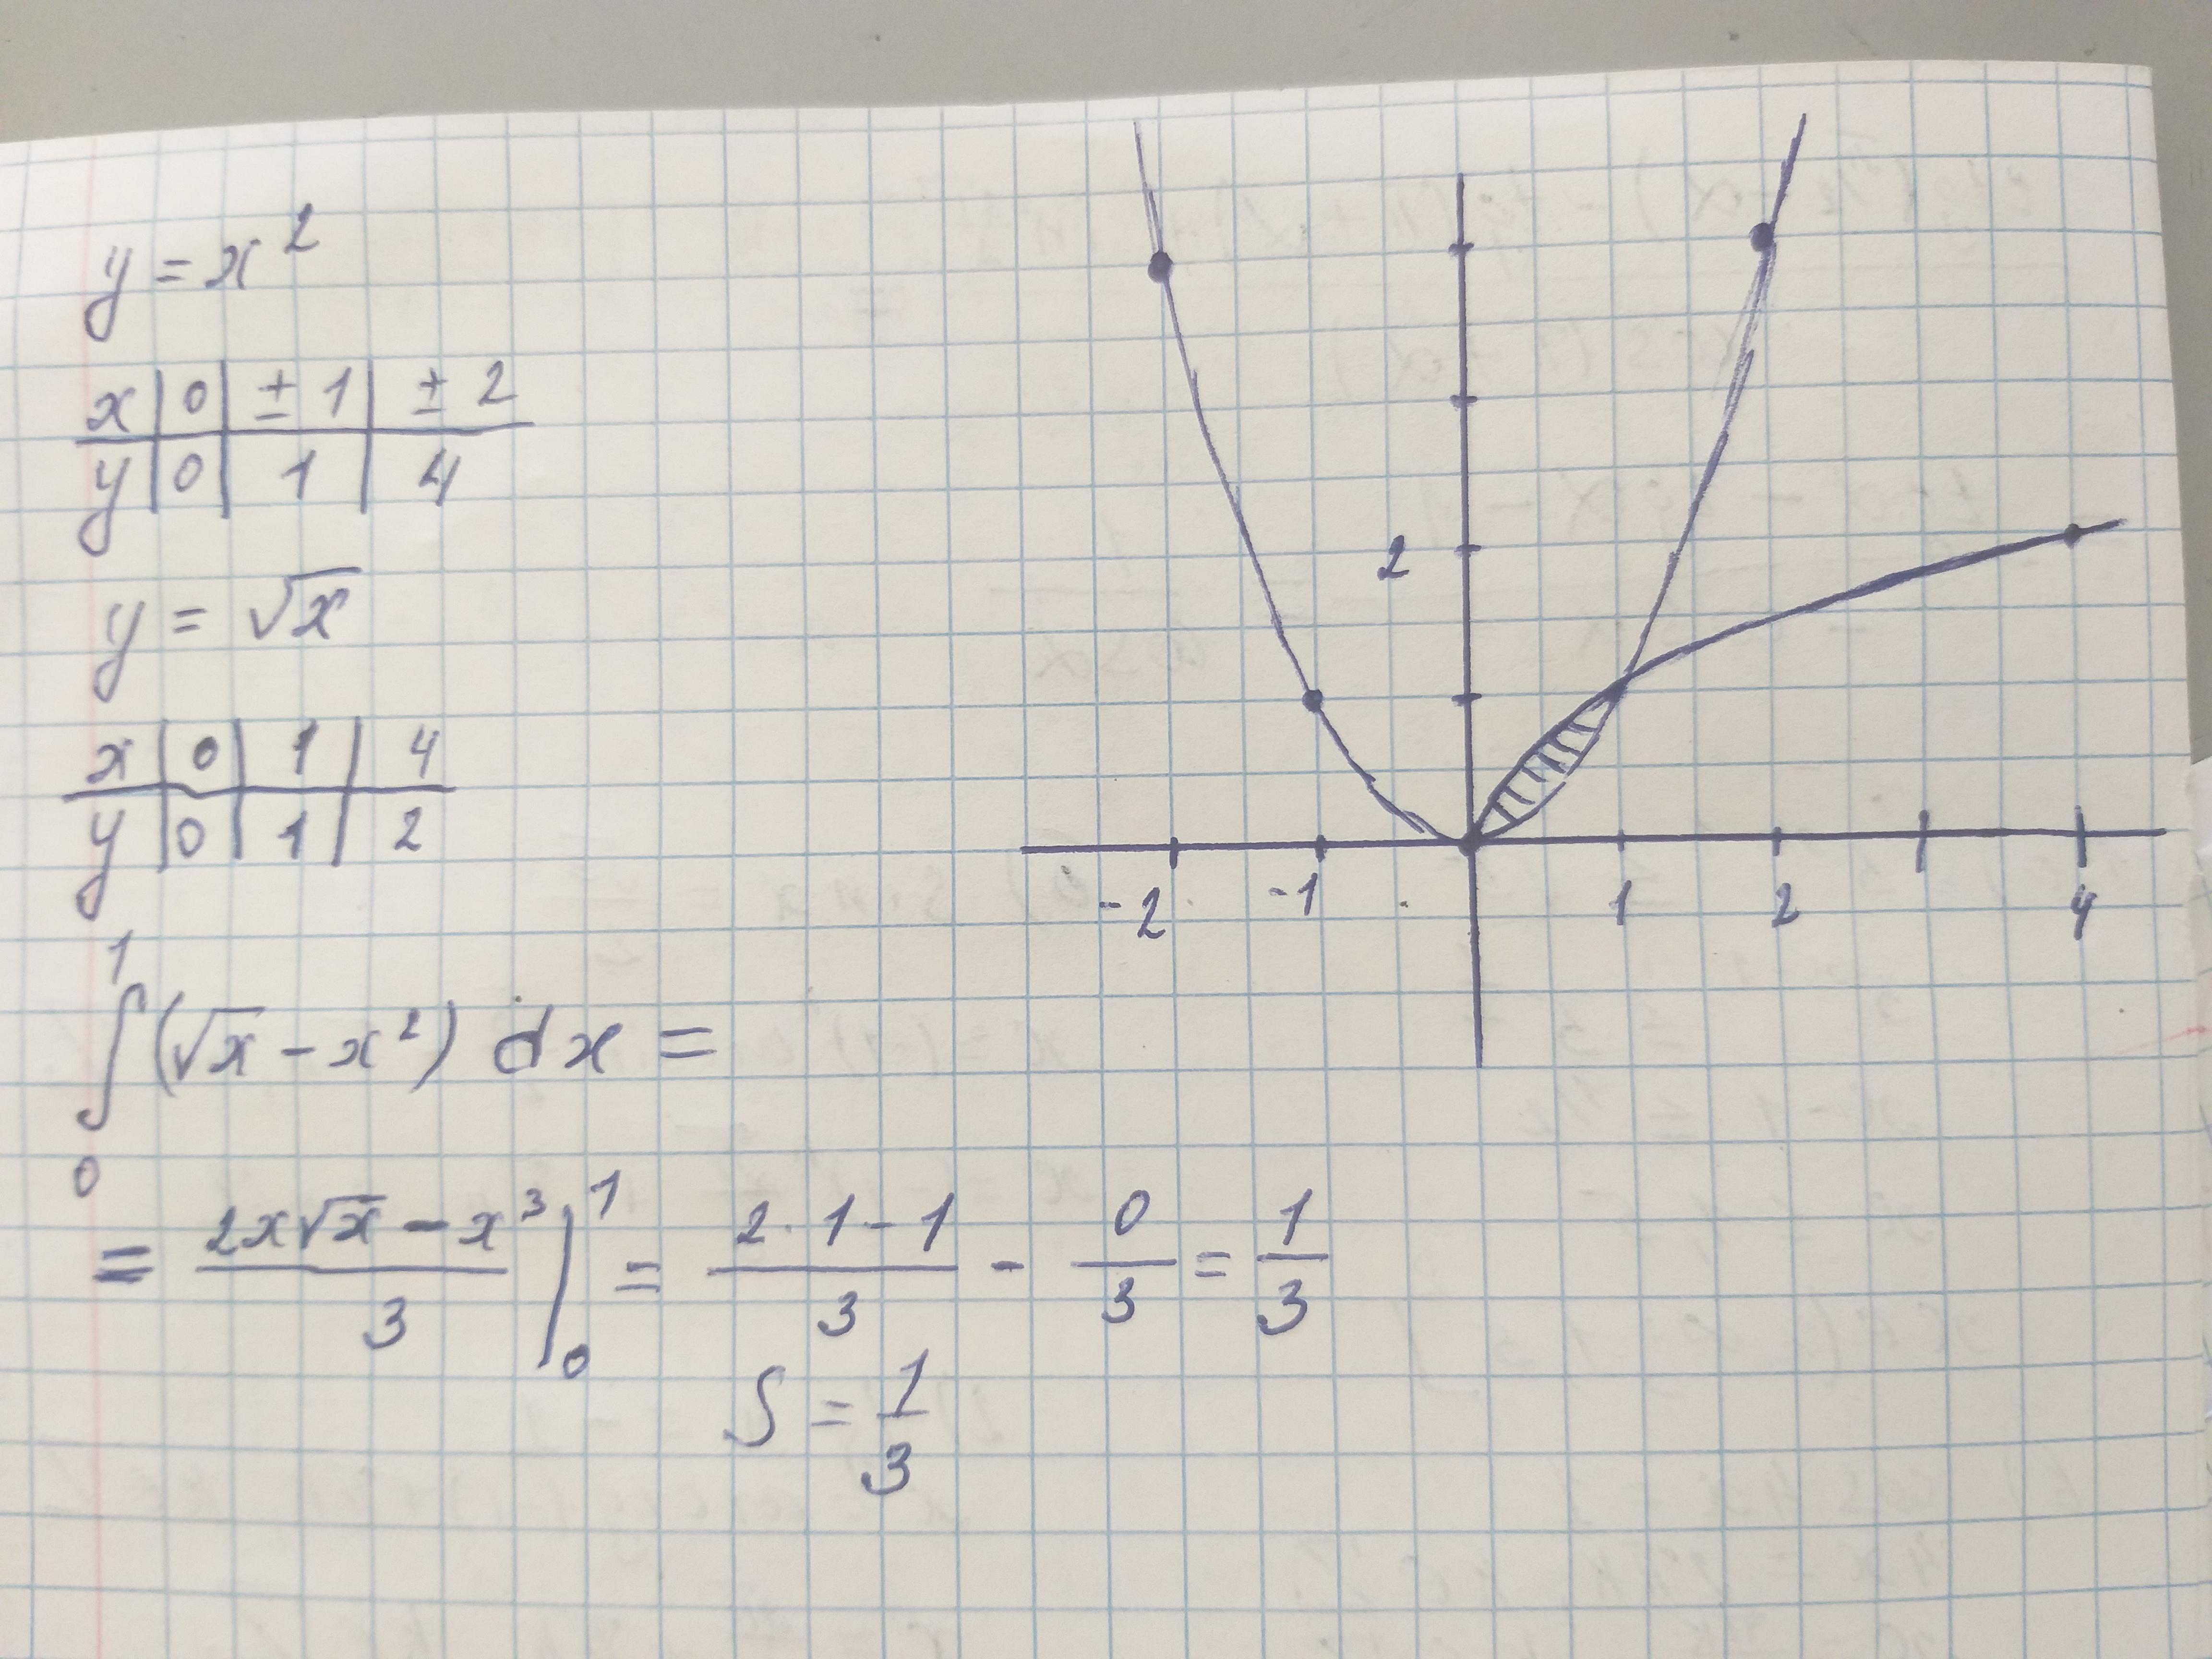 y = x²
x | 0 | ± 1 | ± 2
y | 0 | 1 | 4
y = √x
x | 0 | 1 | 4
y | 0 | 1 | 2
∫₀¹ (√x - x²) dx =
= (2x√x - x³)/3 |₀¹ = (2 · 1 - 1)/3 - 0/3 = 1/3
S = 1/3
2
-2 -1 1 2 4